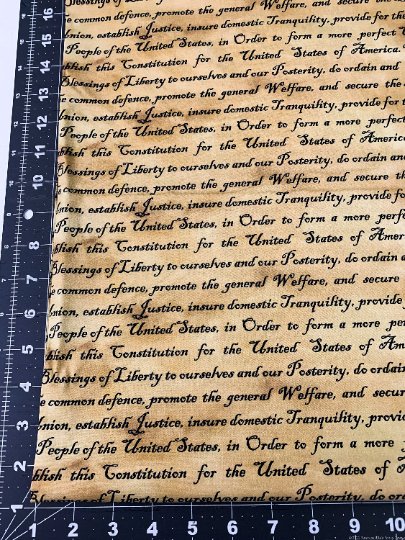 Blessings of Liberty to ourselves and our Posterity, do
common defence, promote the general Welfare, and secure the
Union, establish Justice, insure domestic Tranquility, provide for the
People of the United States, in Order to form a more perfect
blish this Constitution for the United States of America.
Blessings of Liberty to ourselves and our Posterity, do ordain and
e common defence, promote the general Welfare, and secure the
Union, establish Justice, insure domestic Tranquility, provide for t
People of the United States, in Order to form a more perfect
blish this Constitution for the United States of America
Blessings of Liberty to ourselves and our Posterity, do ordain and
e common defence, promote the general Welfare, and secure th
Union, establish Justice, insure domestic Tranquility, provide fo
People of the United States, in Order to form a more perf
blish this Constitution for the United States of Amer
Blessings of Liberty to ourselves and our Posterity, do ordain a
e common defence, promote the general Welfare, and secure
nion, establish Justice, insure domestic Tranquility, provide
People of the United States, in Order to form a more per
blish this Constitution for the United States of Am
Blessings of Liberty to ourselves and our Posterity, do ordain
e common defence, promote the general Welfare, and secure
nion, establish Justice, insure domestic Tranquility, provi
People of the United States, in Order to form a more
blish this Constitution for the United States of A
Blessings of Liberty to ourselves and our Posterity, do or
16
15
14
13
12
11
10
9
8
7
6
5
4
3
2
1
1 2 3 4 5 6 7 8 9 10